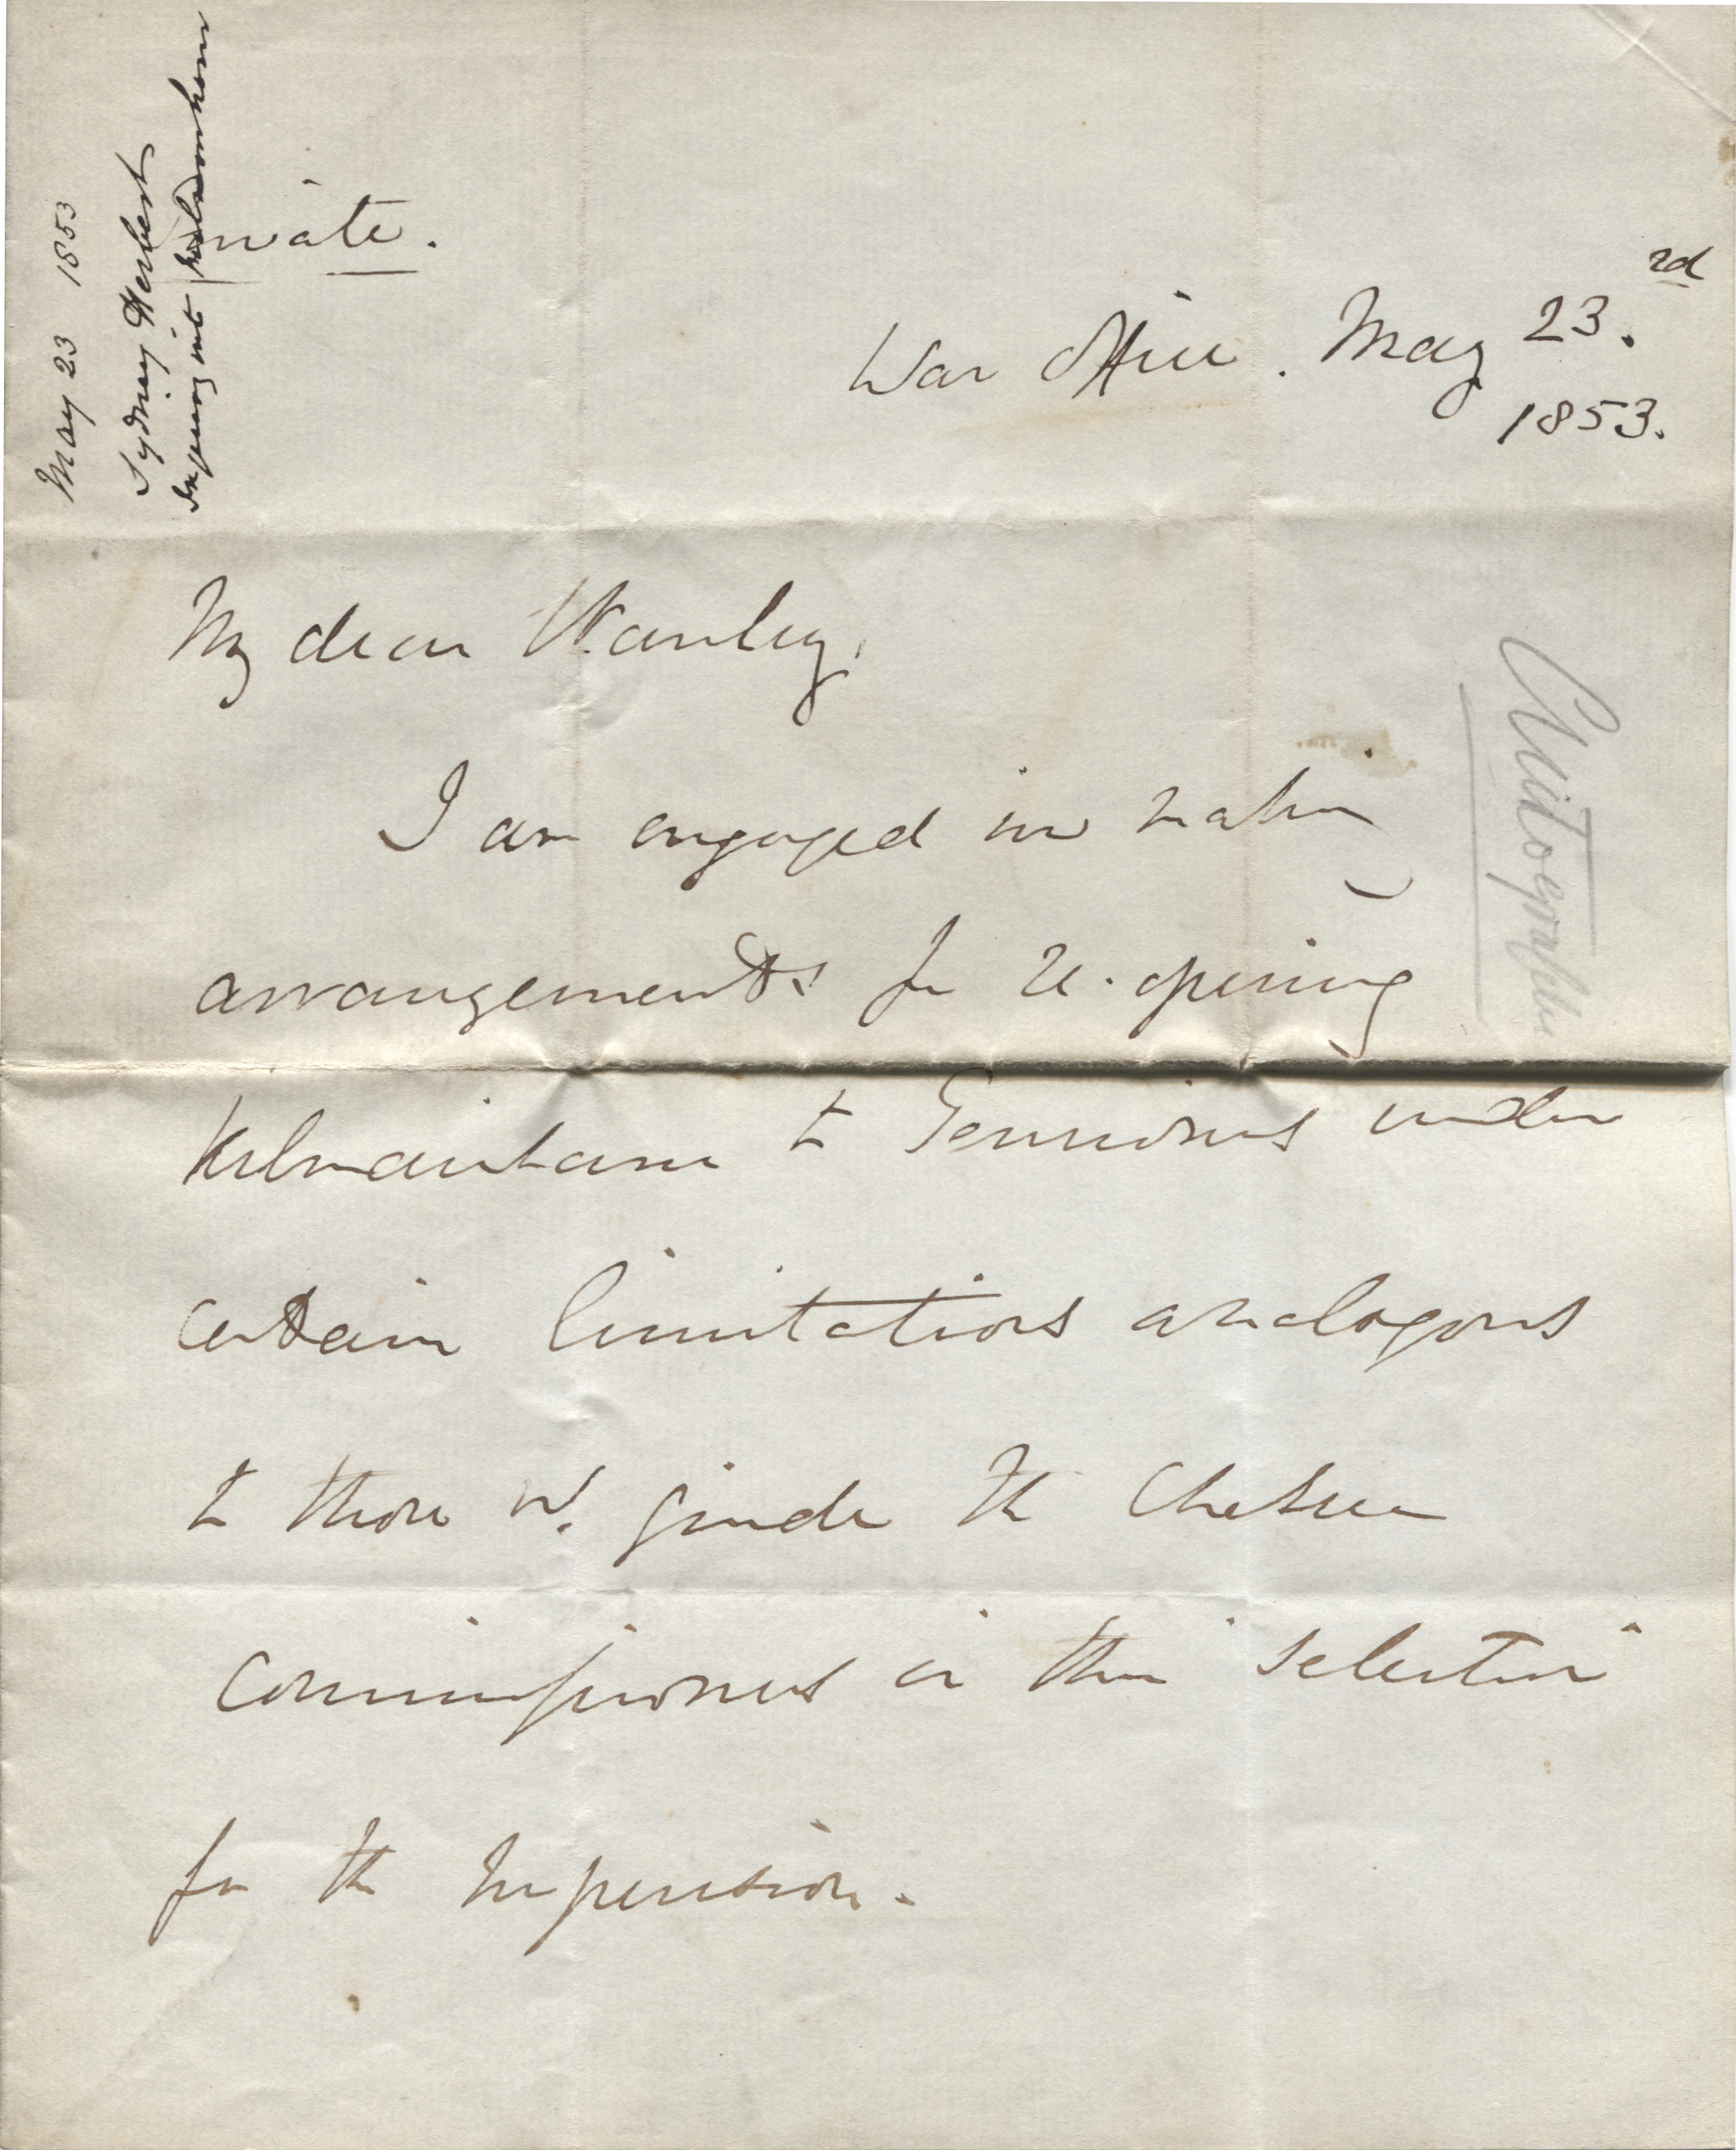 May 23 1853
Sydney Herbert
Inquiry into Kilmainham
Private.
War Office. May 23.rd
1853.
My dear Stanley,
I am engaged in making
arrangements for re-opening
Kilmainham to Pensioners under
certain limitations analogous
to those wh. guide the Chelsea
Commissioners in their selection
for the In pension.
Autographs